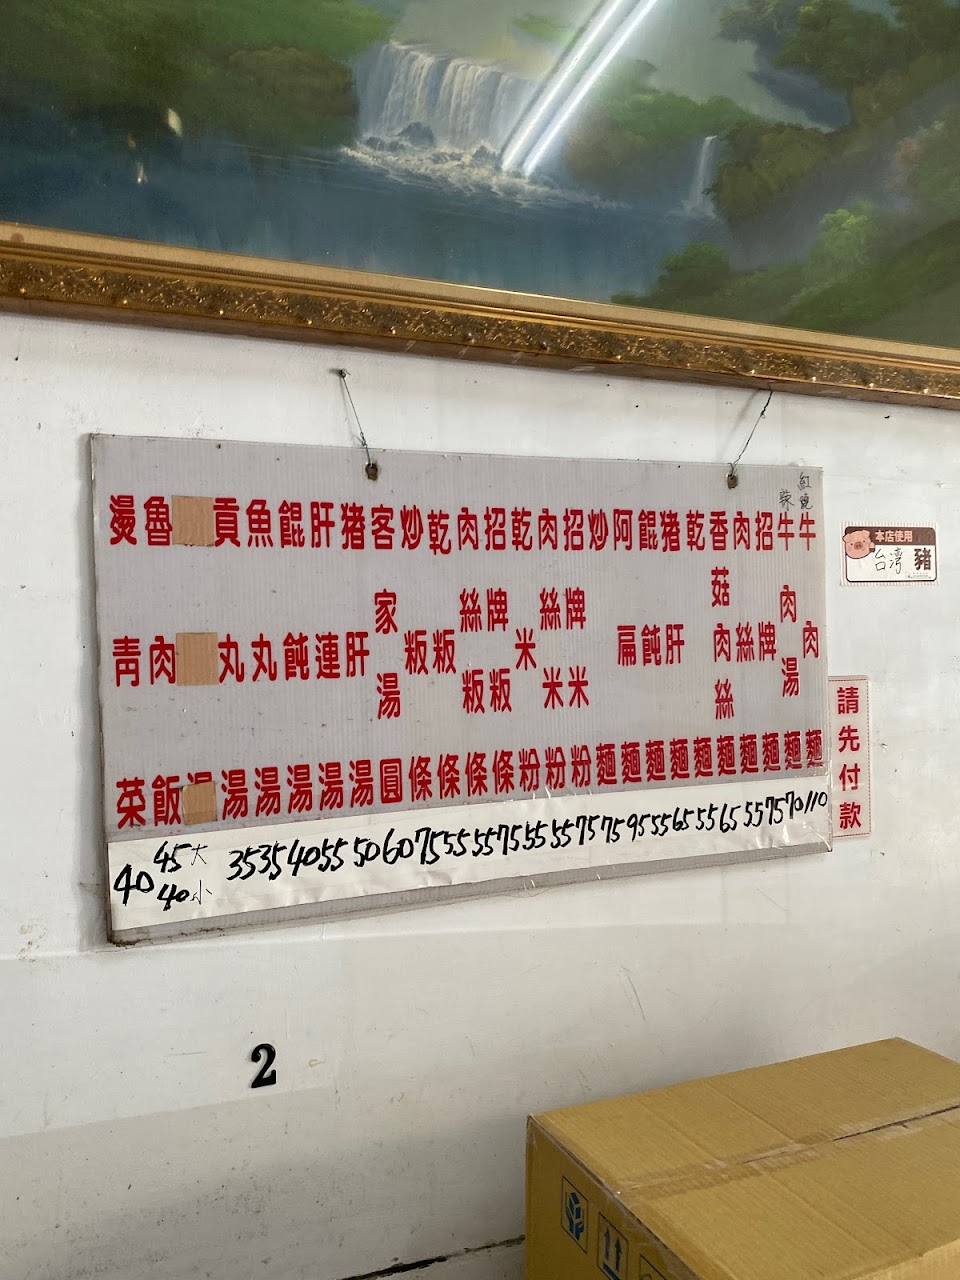 紅燒牛肉麵 110
辣牛肉湯麵 70
招牌麵 75
肉絲麵 55
香菇肉絲麵 65
乾麵 55
豬肝麵 65
餛飩麵 55
阿扁麵 95
炒麵 75
招牌米粉 75
肉絲米粉 55
乾米粉 55
招牌粄條 75
肉絲粄條 55
乾粄條 55
炒粄條 75
客家湯圓 60
豬肝湯 50
肝連湯 55
餛飩湯 40
魚丸湯 35
貢丸湯 35
湯
魯肉飯 45大 40小
燙靑菜 40
本店使用
台湾 豬
請先付款
2